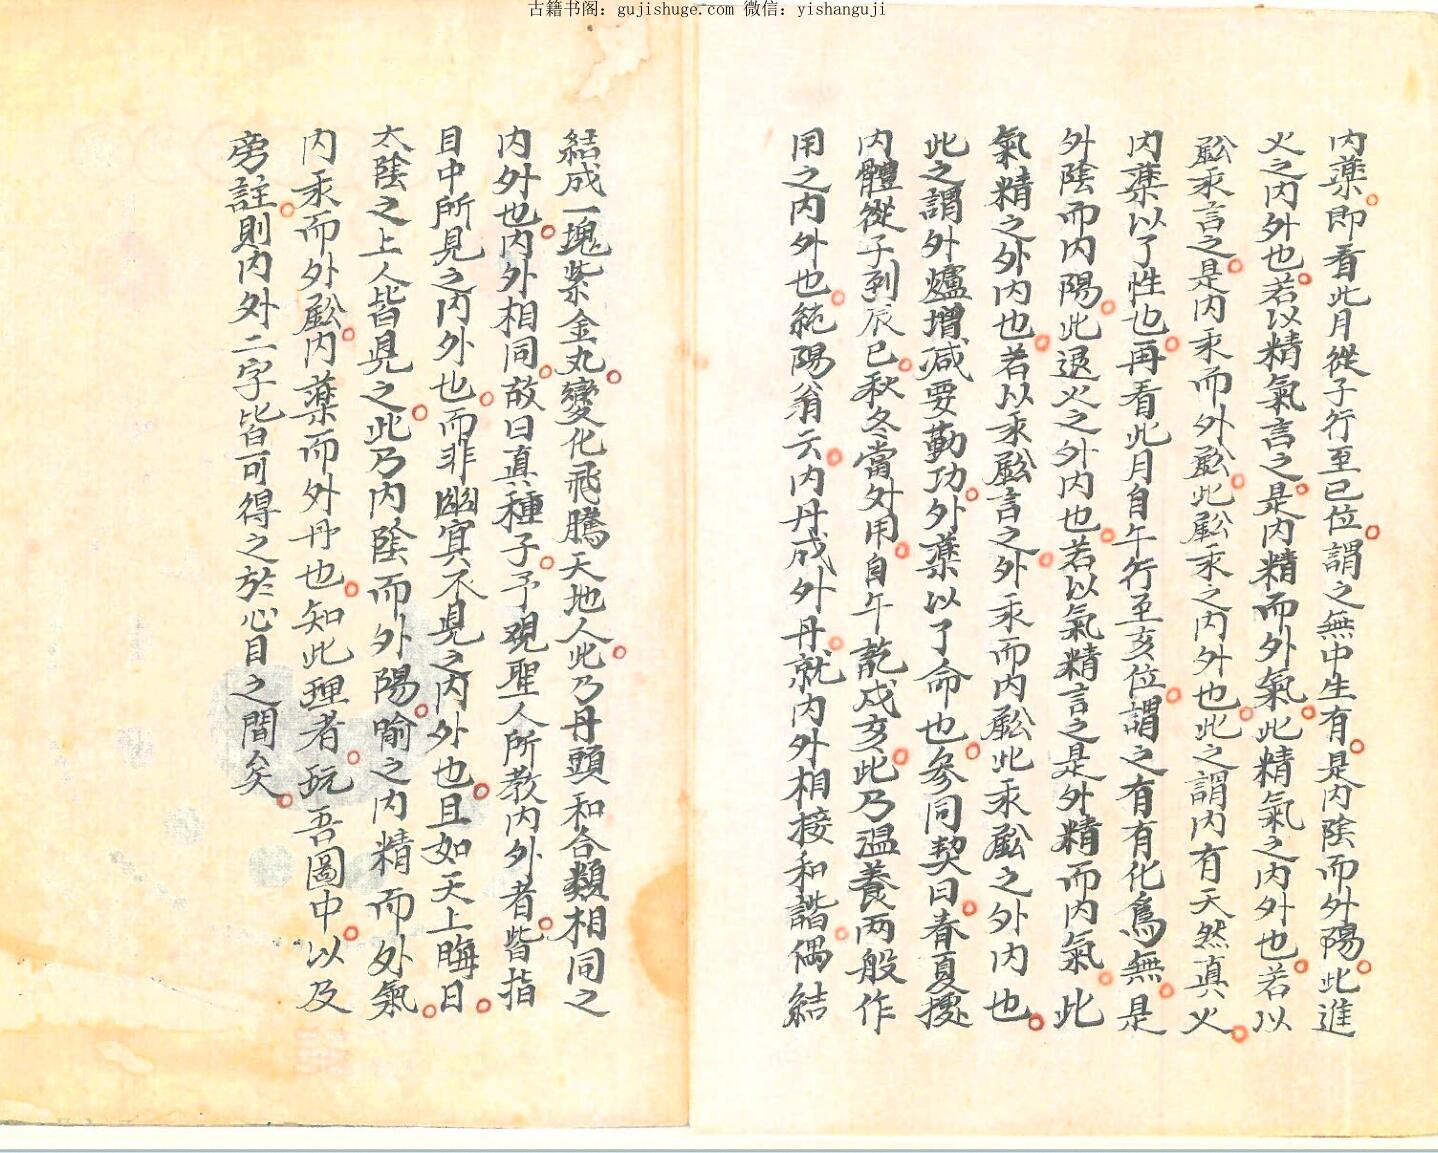 古籍书阁：gujishuge.com 微信：yishanguji
內藥即看此月從子行至巳位謂之無中生有是內陰而外陽此進
火之內外也若以精氣言之是內精而外氣此精氣之內外也若以
鈆汞言之是內汞而外鈆此鈆汞之內外也此之謂內有天然真火
內藥以了性也再看此月自午行至亥位謂之有有化為無是
外陰而內陽此退火之外內也若以氣精言之是外精而內氣此
氣精之外內也若以汞鈆言之外汞而內鈆此汞鈆之外內也
此之謂外爐增減要勤功外藥以了命也參同契曰春夏據
內體從子到辰巳秋冬當外用自午乾戌亥此乃溫養兩般作
用之內外也純陽翁云內丹成外丹就內外相接和諧偶結
結成一塊紫金丸變化飛騰天地人此乃丹頭和合類相同之
內外也內外相同故曰真種子予觀聖人所教內外者皆指
目中所見之內外也而非幽冥不見之內外也且如天上晦日
太陰之上人皆見之此乃內陰而外陽喻之內精而外氣
內汞而外鈆內藥而外丹也知此理者玩吾圖中以及
旁註則內外二字皆可得之於心目之間矣